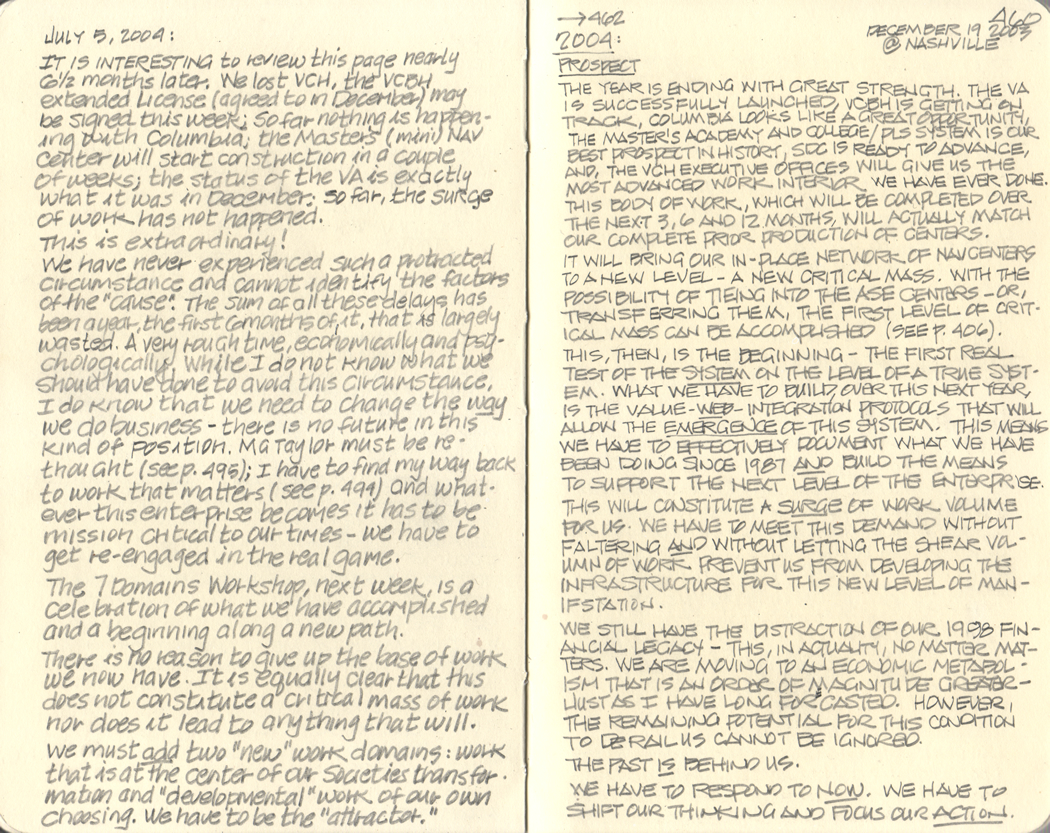 JULY 5, 2004:
IT IS INTERESTING to review this page nearly
6½ months later. We lost VCH, the VCBH
extended License (agreed to in December) may
be signed this week; so far nothing is happen-
ing with Columbia; the Masters (mini) NAV
Center will start construction in a couple
of weeks; the status of the VA is exactly
what it was in December; so far, the surge
of work has not happened.
This is extraordinary!
We have never experienced such a protracted
circumstance and cannot identify the factors
of the "cause". The sum of all these delays has
been a year, the first 6 months of it, that is largely
wasted. A very rough time, economically and psy-
chologically. While I do not know what we
should have done to avoid this circumstance,
I do know that we need to change the way
we do business - there is no future in this
kind of position. MG Taylor must be re-
thought (see p. 495); I have to find my way back
to work that matters (see p. 494) and what-
ever this enterprise becomes it has to be
mission critical to our times - we have to
get re-engaged in the real game.
The 7 Domains Workshop, next week, is a
celebration of what we have accomplished
and a beginning along a new path.
There is no reason to give up the base of work
we now have. It is equally clear that this
does not constitute a critical mass of work
nor does it lead to anything that will.
We must add two "new" work domains: work
that is at the center of our Societies transfor-
mation and "developmental" work of our own
choosing. We have to be the "attractor."
→462
460
DECEMBER 19 2003
@ NASHVILLE
2004:
PROSPECT
THE YEAR IS ENDING WITH GREAT STRENGTH. THE VA
IS SUCCESSFULLY LAUNCHED, VCBH IS GETTING ON
TRACK, COLUMBIA LOOKS LIKE A GREAT OPPORTUNITY,
THE MASTER'S ACADEMY AND COLLEGE/PLS SYSTEM IS OUR
BEST PROSPECT IN HISTORY, SDC IS READY TO ADVANCE,
AND, THE VCH EXECUTIVE OFFICES WILL GIVE US THE
MOST ADVANCED WORK INTERIOR WE HAVE EVER DONE.
THIS BODY OF WORK, WHICH WILL BE COMPLETED OVER
THE NEXT 3, 6 AND 12 MONTHS, WILL ACTUALLY MATCH
OUR COMPLETE PRIOR PRODUCTION OF CENTERS.
IT WILL BRING OUR IN-PLACE NETWORK OF NAVCENTERS
TO A NEW LEVEL - A NEW CRITICAL MASS. WITH THE
POSSIBILITY OF TIEING INTO THE ASE CENTERS - OR,
TRANSFERRING THEM, THE FIRST LEVEL OF CRIT-
ICAL MASS CAN BE ACCOMPLISHED (SEE P. 406).
THIS, THEN, IS THE BEGINNING - THE FIRST REAL
TEST OF THE SYSTEM ON THE LEVEL OF A TRUE SYST-
EM. WHAT WE HAVE TO BUILD, OVER THIS NEXT YEAR,
IS THE VALUE-WEB-INTEGRATION PROTOCOLS THAT WILL
ALLOW THE EMERGENCE OF THIS SYSTEM. THIS MEANS
WE HAVE TO EFFECTIVELY DOCUMENT WHAT WE HAVE
BEEN DOING SINCE 1987 AND BUILD THE MEANS
TO SUPPORT THE NEXT LEVEL OF THE ENTERPRISE.
THIS WILL CONSTITUTE A SURGE OF WORK VOLUME
FOR US. WE HAVE TO MEET THIS DEMAND WITHOUT
FALTERING AND WITHOUT LETTING THE SHEAR VOL-
UMN OF WORK PREVENT US FROM DEVELOPING THE
INFRASTRUCTURE FOR THIS NEW LEVEL OF MAN-
IFSTATION.
WE STILL HAVE THE DISTRACTION OF OUR 1998 FIN-
ANCIAL LEGACY - THIS, IN ACTUALITY, NO MATTER MAT-
TERS. WE ARE MOVING TO AN ECONOMIC METABOL-
ISM THAT IS AN ORDER OF MAGNITUDE GREATER -
JUST AS I HAVE LONG FORCASTED. HOWEVER,
THE REMAINING POTENTIAL FOR THIS CONDITION
TO DERAIL US CANNOT BE IGNORED.
THE PAST IS BEHIND US.
WE HAVE TO RESPOND TO NOW. WE HAVE TO
SHIFT OUR THINKING AND FOCUS OUR ACTION.